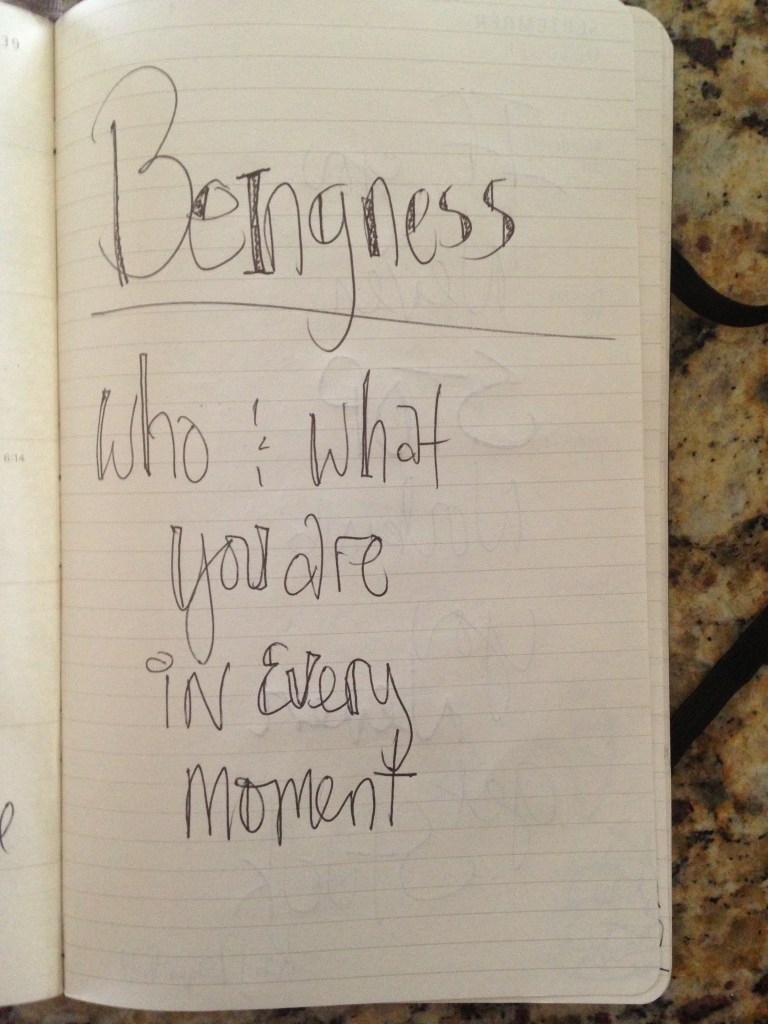 Beingness
Who & what
you are
in Every
moment
SEPTEMBER
39
6:14